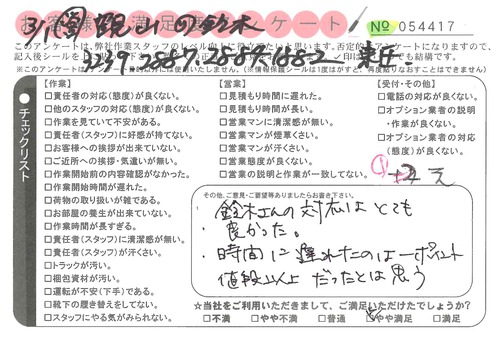 お客様満足度アンケート
No 054417
このアンケートは、弊社作業スタッフのレベル向上に
記入後シールを
3339.2887.2889.1882
【作業】
□責任者の対応(態度)が良くない。
□他のスタッフの対応(態度)が良くない。
□作業を見ていて不安がある。
□責任者(スタッフ)に好感が持てない。
□お客様への挨拶が出来ていない。
□ご近所への挨拶・気遣いが無い。
□作業開始前の内容確認がなかった。
□作業開始時間が遅れた。
□荷物の取り扱いが雑である。
□お部屋の養生が出来ていない。
□作業時間が長すぎる。
□責任者(スタッフ)に清潔感が無い。
□責任者(スタッフ)が汗くさい。
□トラックが汚い。
□梱包資材が汚い。
□運転が不安(下手)である。
□靴下の履き替えをしてない。
□スタッフにやる気がみられない。
【営業】
□見積もり時間に遅れた。
□見積もり時間が長い。
□営業マンに清潔感が無い。
□営業マンが煙草くさい。
□営業マンが汗くさい。
□営業態度が良くない。
□営業の説明と作業が一致してない。
【受付・その他】
□電話の対応が良くない。
□オプション業者の説明
・作業が良くない。
□オプション業者の対応
(態度)が良くない。
チェックリスト
その他、ご意見・ご要望等ありましたらお書き下さい。
・鈴木さんの対応はとても
良かった。
・時間に遅れたのは一ポイント
値段以上だったとは思う
★当社をご利用いただきまして、ご満足いただけたでしょうか?
□不満 □やや不満 □普通 □やや満足 □満足